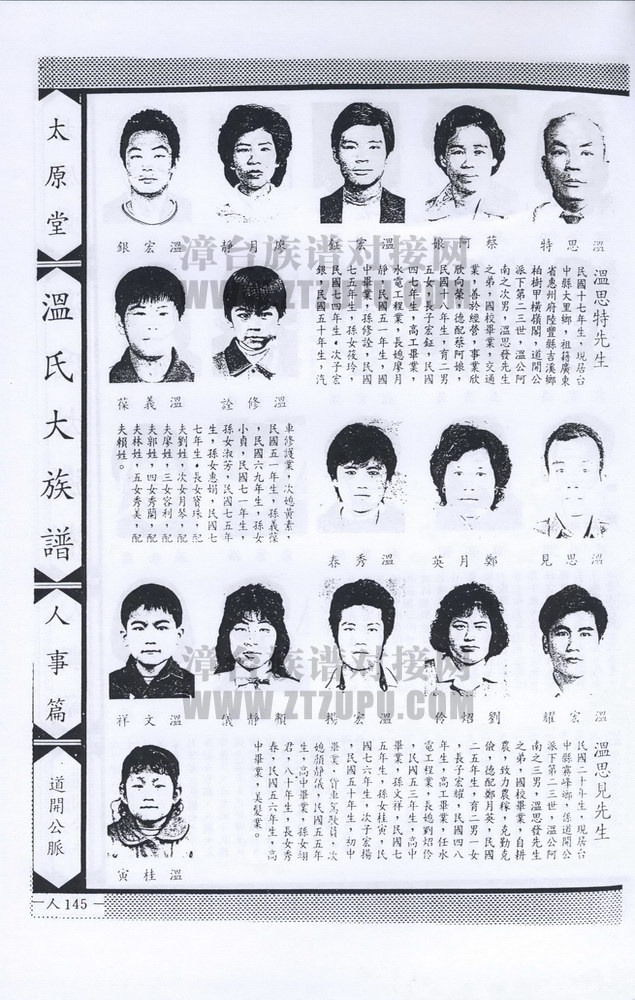 太原堂
溫氏大族譜
人事篇
道開公脈
人 145
溫思特
蔡阿娘
溫宏鉦
廖月靜
溫宏銀
溫思特先生
民國十七年生，現居台
中縣大里鄉，祖籍廣東
省惠州府陸豐縣吉溪鄉
柏樹甲橫嶺閣，道開公
派下第二三世，溫公阿
南之次男，溫思發先生
之弟，國校畢業，交通
業，善於經營，事業欣
欣向榮。德配蔡阿娘，
民國十八年生，育二男
五女，長子宏鉦，民國
四七年生，高工畢業，
水電工程業，長媳廖月
靜，民國五一年生，國
中畢業，孫修詮，民國
七五年生，孫女筱玲，
民國七四年生。次子宏
銀，民國五十年生，汽
溫修詮
溫義葆
車修護業，次媳黃素，
民國五一年生，孫義葆
，民國六九年生，孫女
小貞，民國七一年生，
孫女淑芳，民國七五年
生，孫女惠娟，民國七
七年生。長女寶珠，配
夫劉姓，次女月琴，配
夫廖姓，三女容利，配
夫郭姓，四女秀蘭，配
夫林姓，五女秀美，配
夫賴姓。
溫思見
鄭月英
溫秀春
溫宏耀
劉炤伶
溫宏揚
顏靜儀
溫文祥
溫思見先生
民國二十年生，現居台
中縣霧峰鄉，係道開公
派下第二三世，溫公阿
南之三男，溫思發先生
之弟，國校畢業，自耕
農，致力農稼，克勤克
儉，德配鄭月英，民國
二五年生，育二男一女
，長子宏耀，民國四八
年生，高工畢業，任水
電工程業，長媳劉炤伶
，民國五三年生，高中
畢業，孫文祥，民國七
五年生，孫女桂寅，民
國七六年生，次子宏揚
，民國五十年生，初中
畢業，貨車駕駛員，次
媳顏靜儀，民國五五年
生，高中畢業，孫女翊
君，八十年生，長女秀
春，民國五六年生，高
中畢業，美髮業。
溫桂寅
漳台族谱对接网
WWW.ZTZUPU.COM
漳台族谱对接网
WWW.ZTZUPU.COM